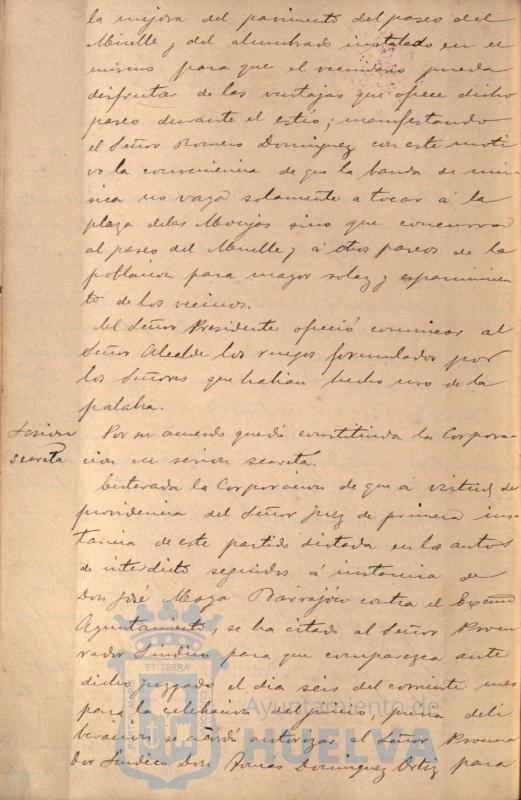 la mejora del pavimento del paseo del
Muelle y del alumbrado instalado en el
mismo para que el vecindario pueda
disfrutar de las ventajas que ofece dicho
paseo durante el estío; manifestando
el Señor Romero Dominguez con este moti
vo la conveniencia de que la banda de mú
sica no vaya solamente a tocar á la
plaza de las Monjas sino que concurra
al paseo del Muelle y á otros paseos de la
poblacion para mayor solaz y esparcimien
to de los vecinos.
El Señor Presidente ofeció comunicar al
Señor Alcalde los ruegos formulados por
los Señores que habian hecho uso de la
palabra.
Sesion
secreta
Por su acuerdo quedó constituida la Corpora-
cion en sesion secreta.
Enterada la Corporacion de que á virtud de
providencia del Señor Juez de primera ins
tancia de este partido dictada en los autos
de interdicto seguidos á instancia de
Don José Maza Barrajón contra el Excmo
Ayuntamiento, se ha citado al Señor Procu
rador Sindico para que comparezca ante
dicho juzgado el dia seis del corriente mes
para la celebracion del juicio, previa deli
beracion se acordó autorizar al Señor Procura
dor Sindico Don Tomas Dominguez Ortiz para
ET TERRA
Ayuntamiento de
HUELVA